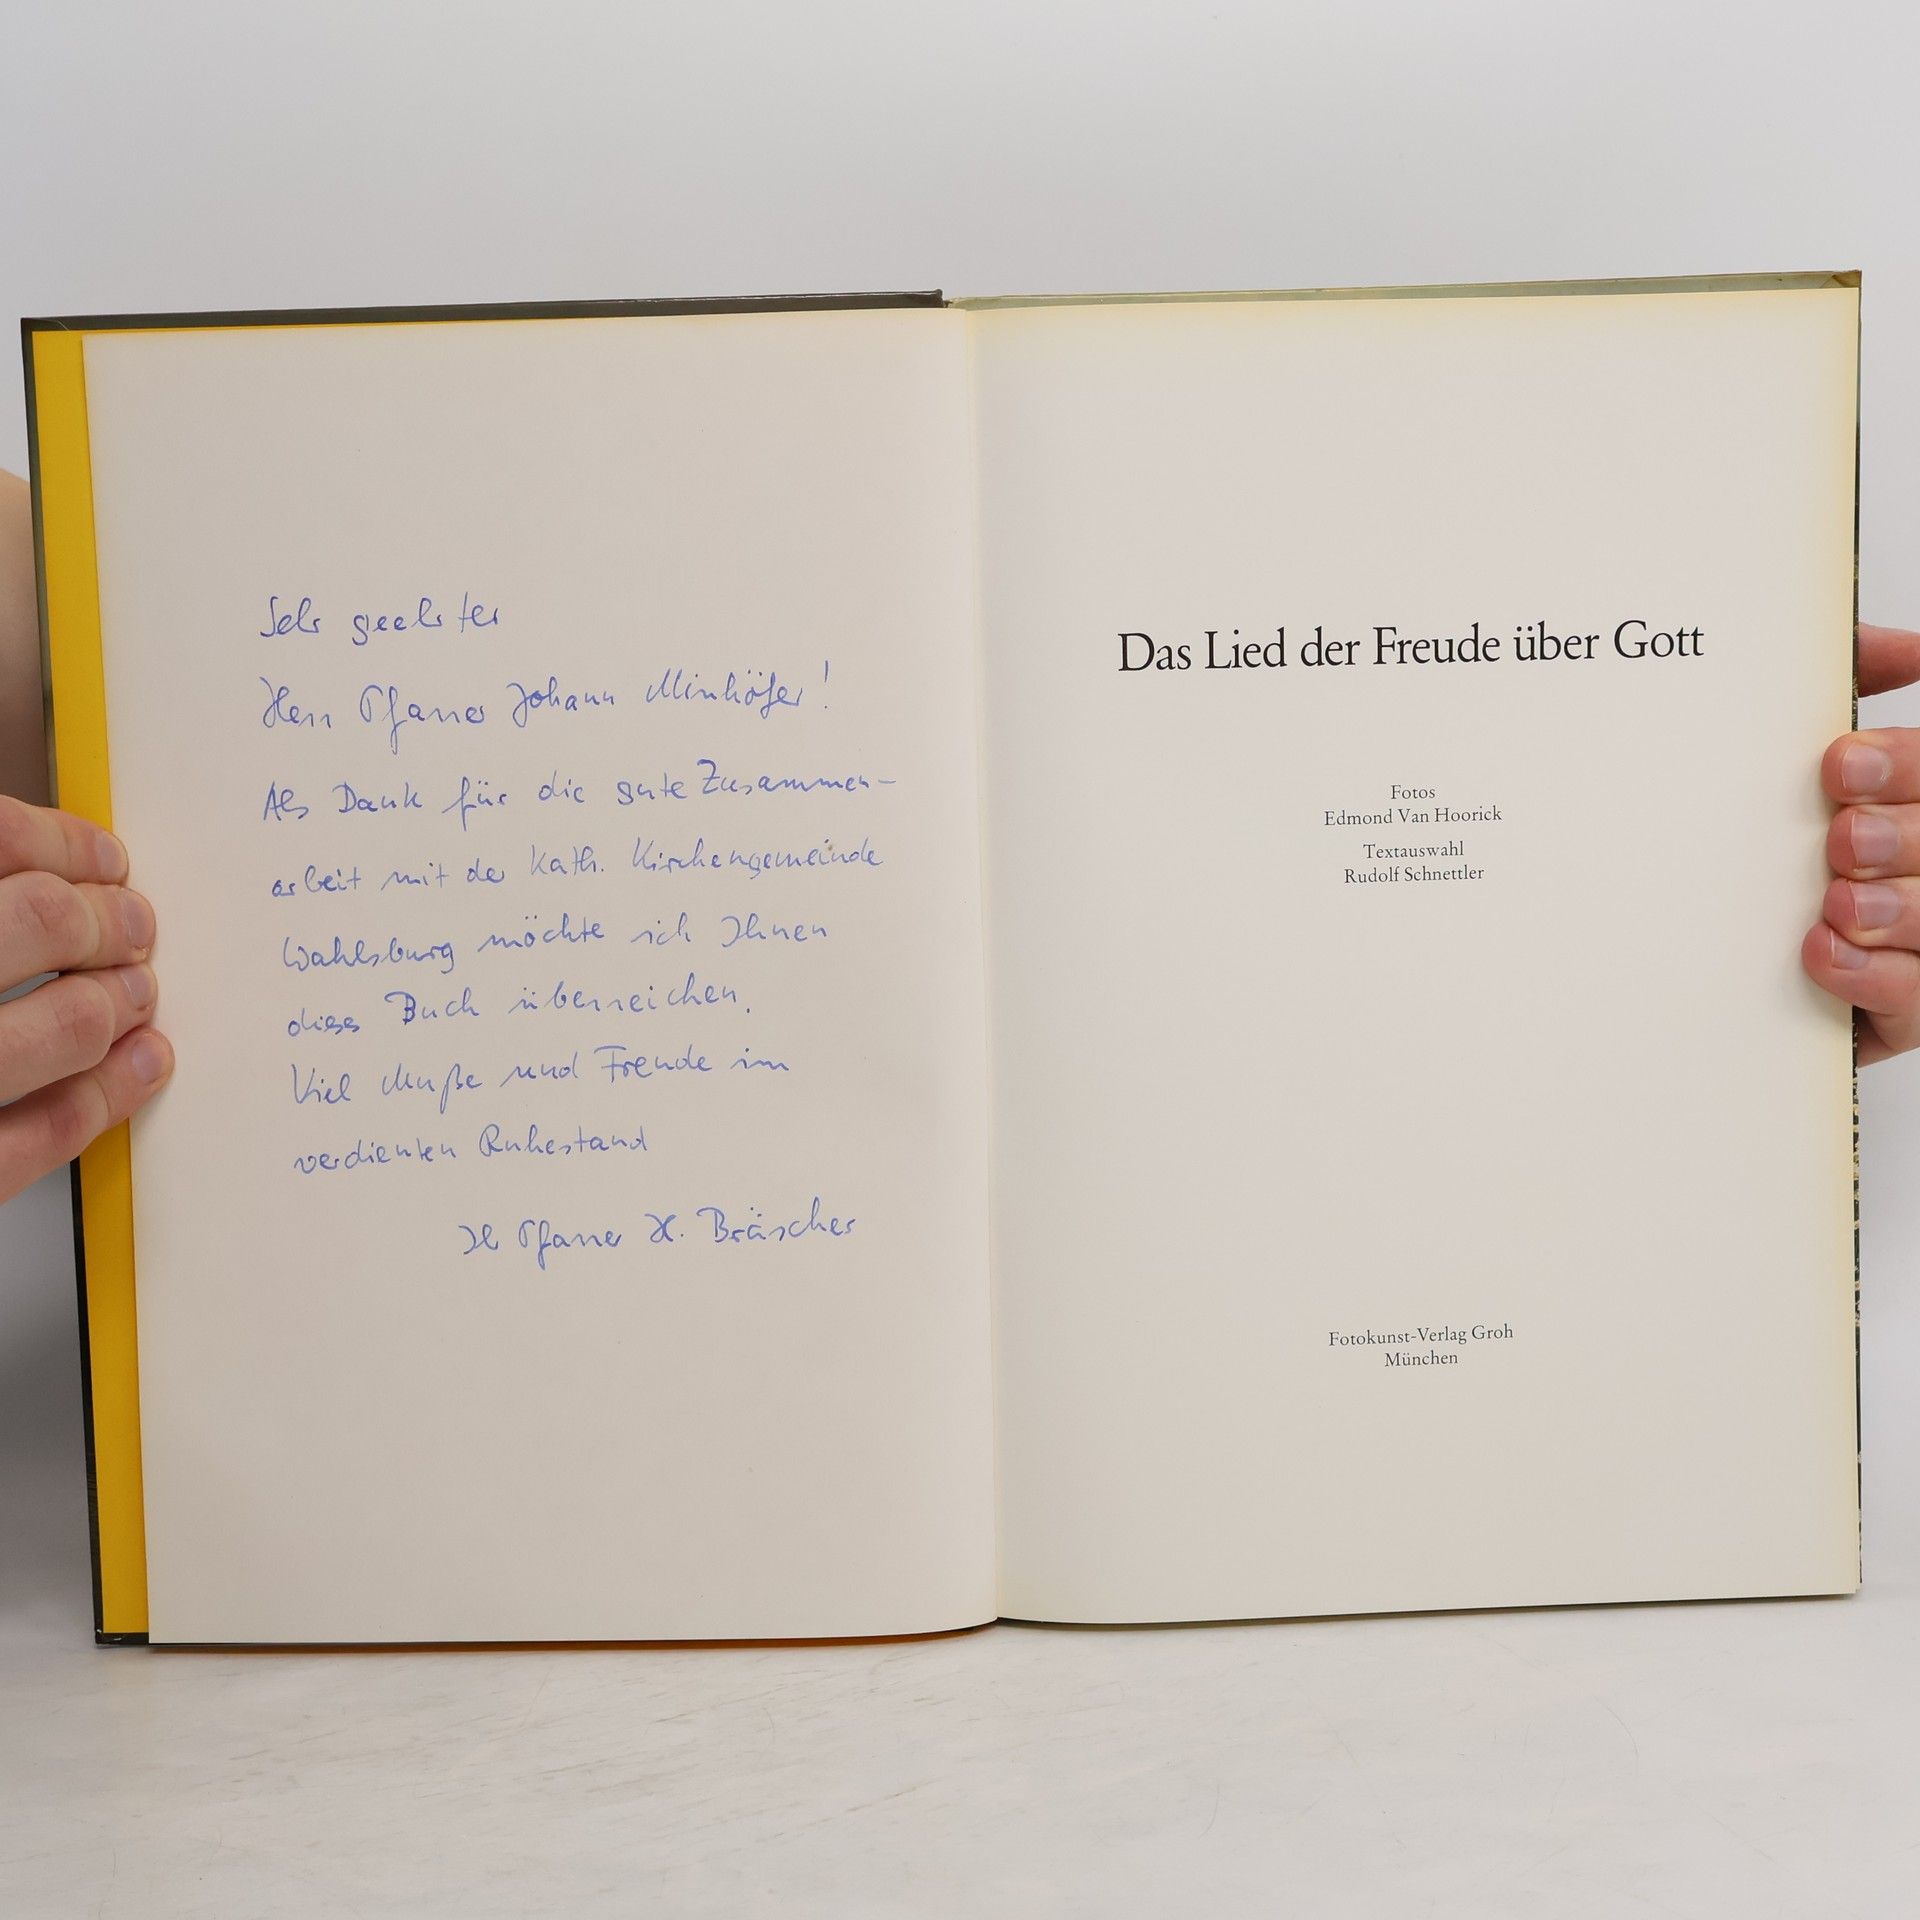 Sehr geehrter
Herr Pfarrer Johann Minhöfer!
Als Dank für die gute Zusammen-
arbeit mit der Kath. Kirchengemeinde
Wahlsburg möchte ich Ihnen
dieses Buch überreichen.
Viel Muße und Freude im
verdienten Ruhestand
Pfarrer H. Bräscher
Das Lied der Freude über Gott
Fotos
Edmond Van Hoorick
Textauswahl
Rudolf Schnettler
Fotokunst-Verlag Groh
München